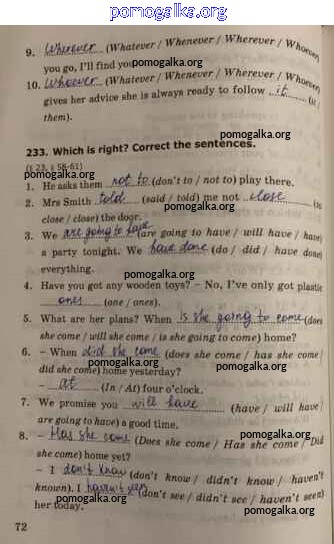 pomogalka.org
9. Wherever (Whatever / Whenever / Wherever / Whoever)
you go, I'll find you
pomogalka.org
10. Whoever (Whatever / Whenever / Wherever / Whoever)
pomogalka.org
gives her advice she is always ready to follow it (it /
them).
pomogalka.org
233. Which is right? Correct the sentences.
(§ 23, § 58-61)
pomogalka.org
pomogalka.org
1. He asks them not to (don't to / not to) play there.
2. Mrs Smith told (said / told) me not close (to
close / close) the door.
pomogalka.org
3. We are going to have (are going to have / will have / have)
a party tonight. We have done (do / did / have done)
everything.
pomogalka.org
pomogalka.org
4. Have you got any wooden toys? – No, I've only got plastic
ones (one / ones).
pomogalka.org
5. What are her plans? When is she going to come (does
she come / will she come / is she going to come) home?
pomogalka.org
6. – When did she come (does she come / has she come /
did she come) home yesterday?
pomogalka.org
– At (In / At) four o'clock.
pomogalka.org
7. We promise you will have (have / will have /
are going to have) a good time.
pomogalka.org
8. – Has she come (Does she come / Has she come / Did
she come) home yet?
pomogalka.org
– I don't know (don't know / didn't know / haven't
known). I haven't seen (don't see / didn't see / haven't seen)
pomogalka.org
her today.
pomogalka.org
72
pomogalka.org